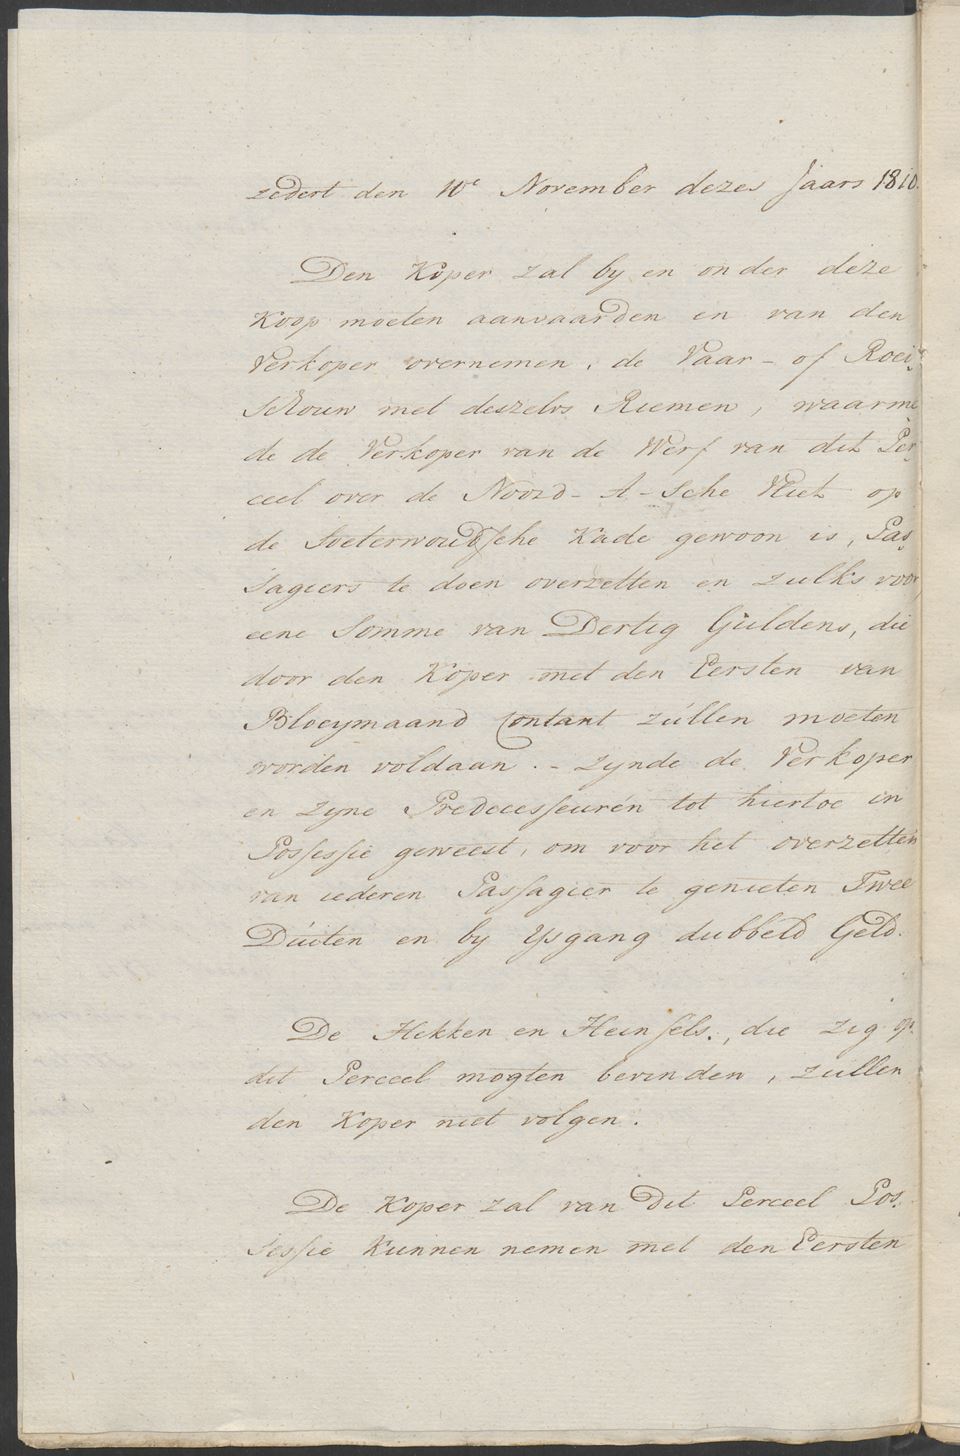 zedert den 10e November dezes Jaars 1810.
Den Koper zal by en onder deze
Koop moeten aanvaarden en van den
Verkoper overnemen, de Vaar- of Roei-
Schouw met deszelvs Riemen, waarme-
de de Verkoper van de Werf van dit Per-
ceel over de Noord-A-sche Vliet op
de Soeterwoudsche Kade gewoon is, Pas-
sagiers te doen overzetten en zulks voor
eene Somme van Dertig Guldens, die
door den Koper met den Eersten van
Bloeymaand Contant zullen moeten
worden voldaan. - zynde de Verkoper
en zyne Predecesseuren tot hiertoe in
Possessie geweest, om voor het overzetten
van iederen Passagier te genieten Twee
Duiten en by Ysgang dubbeld Geld.
De Hekken en Heinsels, die zig op
dit Perceel mogten bevinden, zullen
den Koper niet volgen.
De Koper zal van dit Perceel Pos-
sessie kunnen nemen met den Eersten